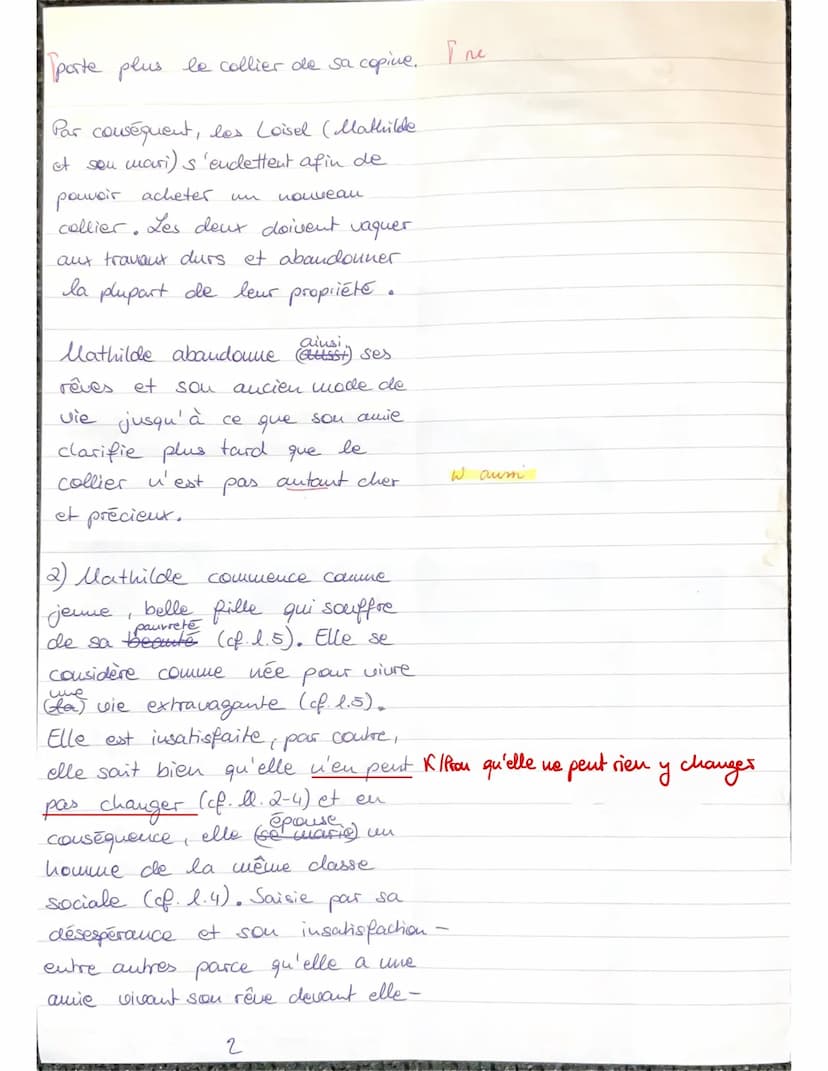 ⌈porte plus le collier de sa copine. ⌈ ne
Par conséquent, les Loisel (Mathilde
et son mari) s'endettent afin de
pouvoir acheter un nouveau
collier. Les deux doivent vaquer
aux travaux durs et abandonner
la plupart de leur propriété.
Mathilde abandonne (aussi) ainsi ses
rêves et son ancien mode de
vie jusqu'à ce que son amie
clarifie plus tard que le
collier n'est pas autant cher W aussi
et précieux.
2) Mathilde commence comme
jeune, belle fille qui souffre
de sa beauté pauvreté (cf. l.5). Elle se
considère comme née pour vivre
(la) une vie extravagante (cf. l.5).
Elle est insatisfaite, par contre,
elle sait bien qu'elle n'en peut K/Pron qu'elle ne peut rien y changer
pas changer (cf. ll. 2-4) et en
conséquence, elle (se marie) épouse un
homme de la même classe
sociale (cf. l.4). Saisie par sa
désespérance et son insatisfaction -
entre autres parce qu'elle a une
amie vivant son rêve devant elle -
2